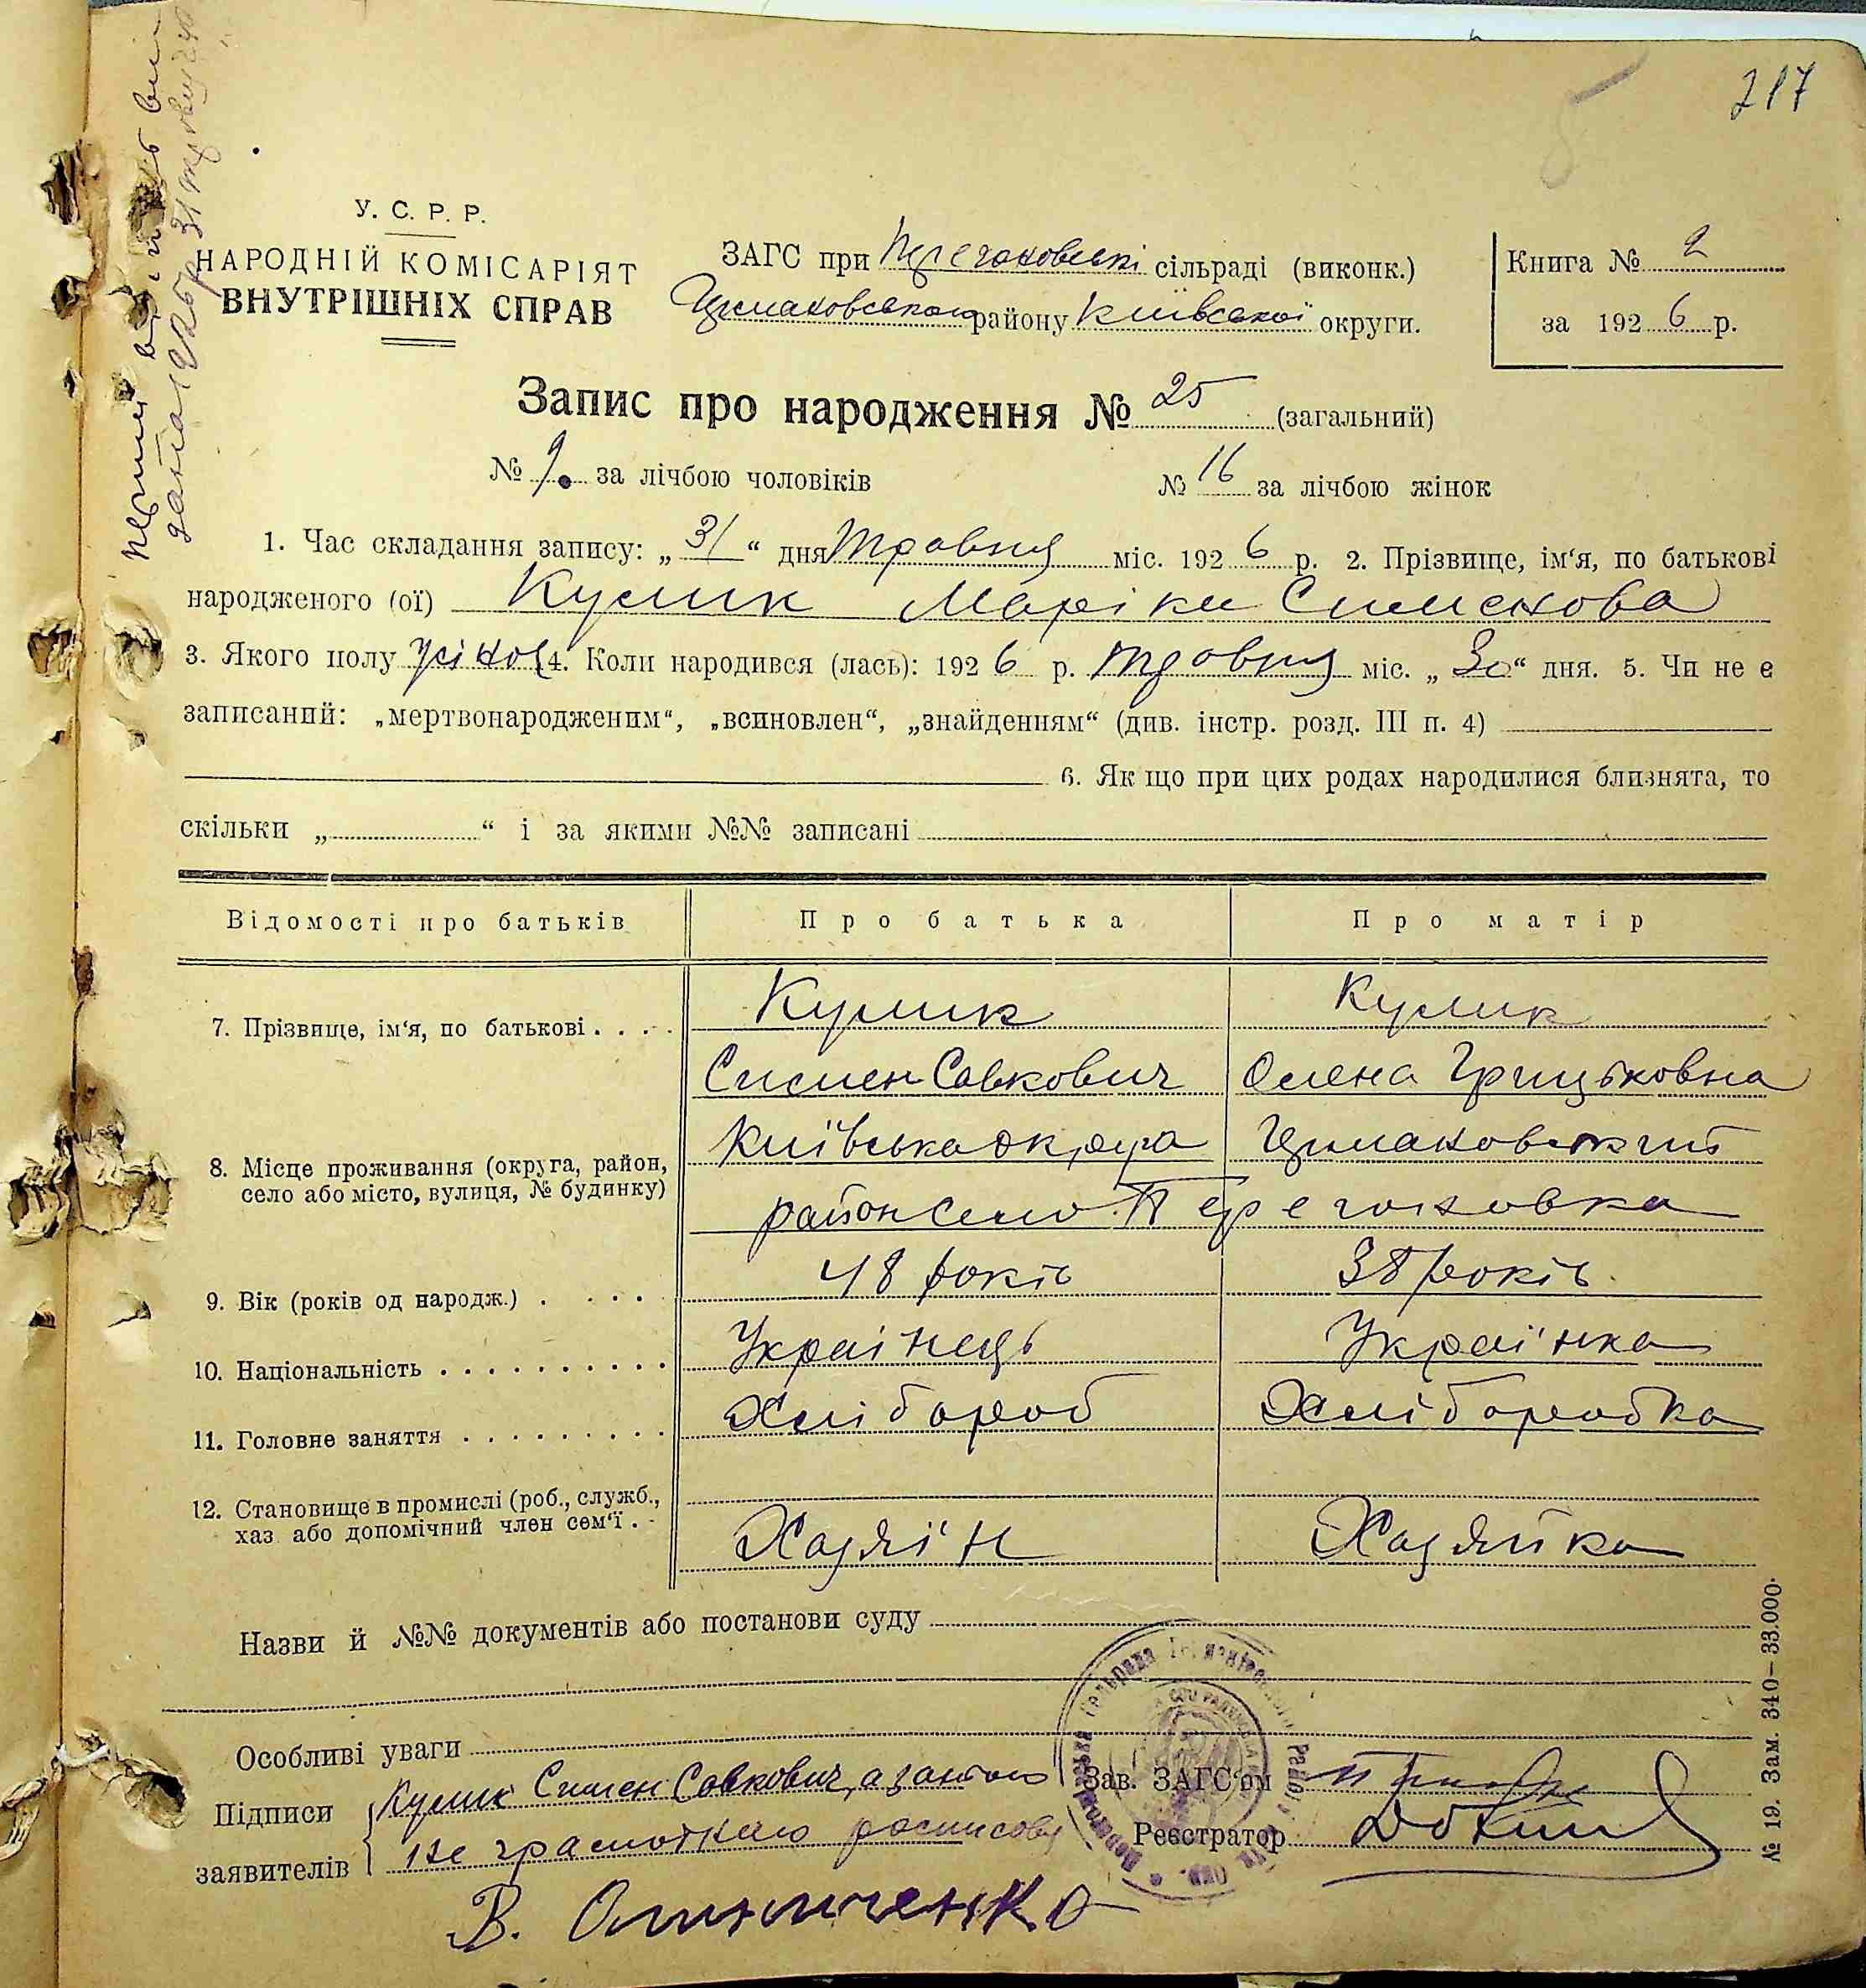 217
У. С. Р. Р.
НАРОДНІЙ КОМІСАРІЯТ
ВНУТРІШНІХ СПРАВ
ЗАГС при сільраді (виконк.)
району Київської округи.
Книга № 2
за 1926 р.
Запис про народження № 25 (загальний)
№ 9. за лічбою чоловіків № 16 за лічбою жінок
1. Час складання запису: „31“ дня Травня міс. 1926 р. 2. Прізвище, ім‘я, по батькові
народженого (ої) Кулик Марійка Сименова
3. Якого полу 4. Коли народився (лась): 1926 р. травня міс. „30“ дня. 5. Чи не є
записаний: „мертвонародженим“, „всиновлен“, „знайденням“ (див. інстр. розд. III п. 4)
6. Як що при цих родах народилися близнята, то
скільки „ “ і за якими №№ записані
Відомості про батьків Про батька Про матір
7. Прізвище, ім‘я, по батькові Кулик Кулик
Симен Савкович Олена Грицьковна
8. Місце проживання (округа, район, Київська округа
село або місто, вулиця, № будинку) район село
9. Вік (років од народж.) 48 років 38 років.
10. Національність Украінець Украінка
11. Головне заняття Хлібороб Хлібаробка
12. Становище в промислі (роб., служб.,
хаз або допомічний член сем‘ї Хазяїн Хазяйка
Назви й №№ документів або постанови суду
Особливі уваги
Підписи Кулик Симен Савкович, а за
заявителів не грамоткаго
Зав. ЗАГС‘ом
Реєстратор
В.
№ 19. Зам. 340–33.000.